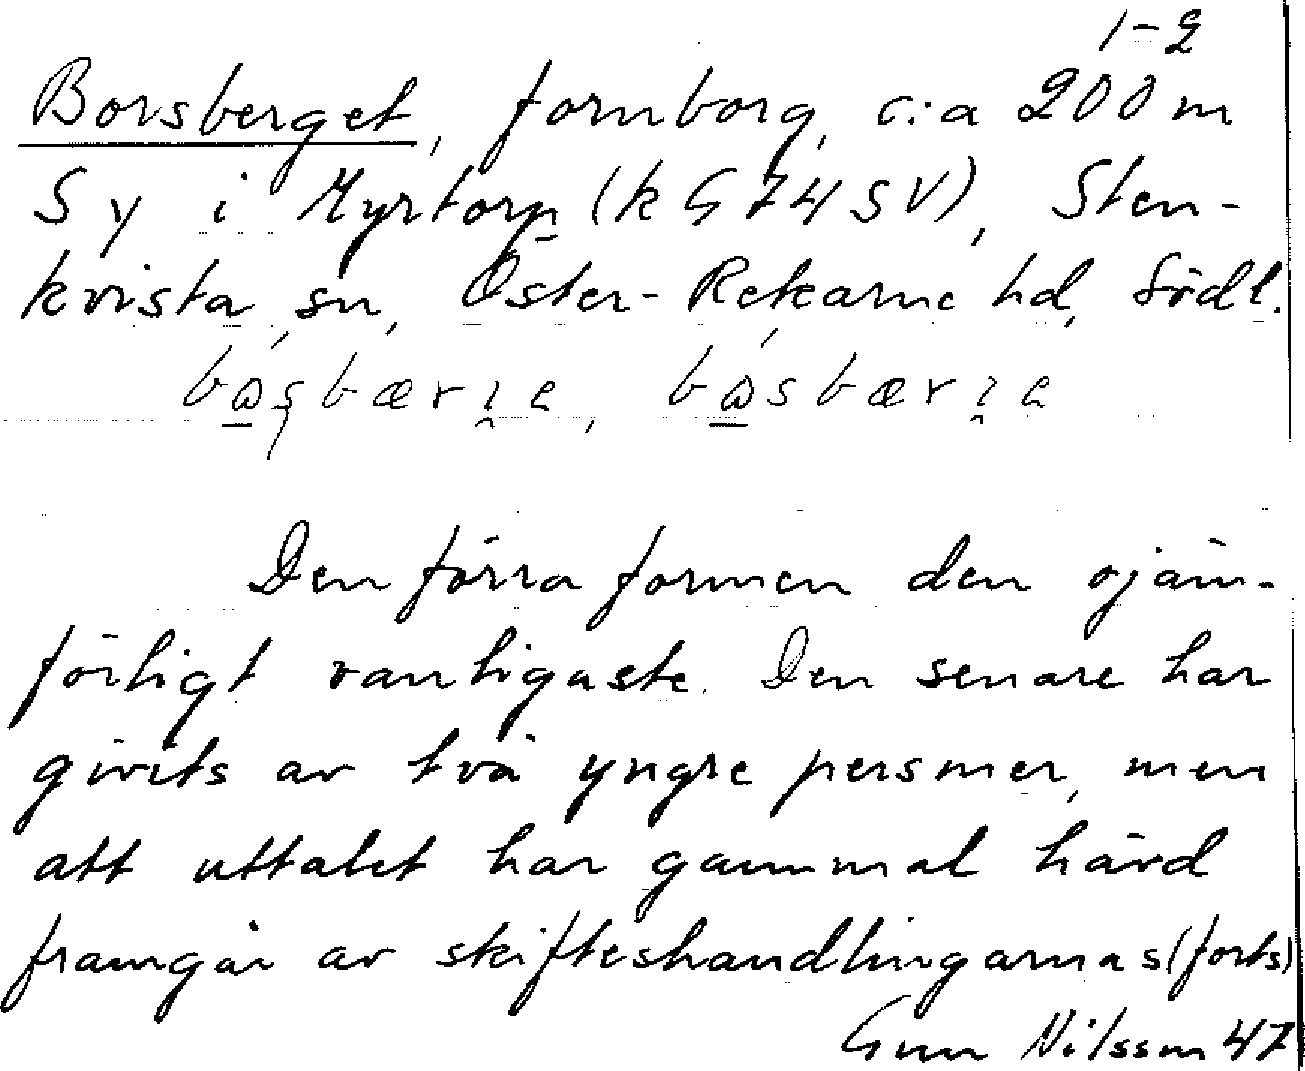 1-2
Borsberget, fornborg, c:a 200 m
S y i Myrtorp (k G 74 SV), Sten-
kvista sn, Öster-Rekarne hd, Södl.
Den förra formen den ojäm-
förligt vanligaste. Den senare har
givits av två yngre personer, men
att uttalet har gammal hävd
framgår av skifteshandlingarnas (forts)
Gun Nilsson 47